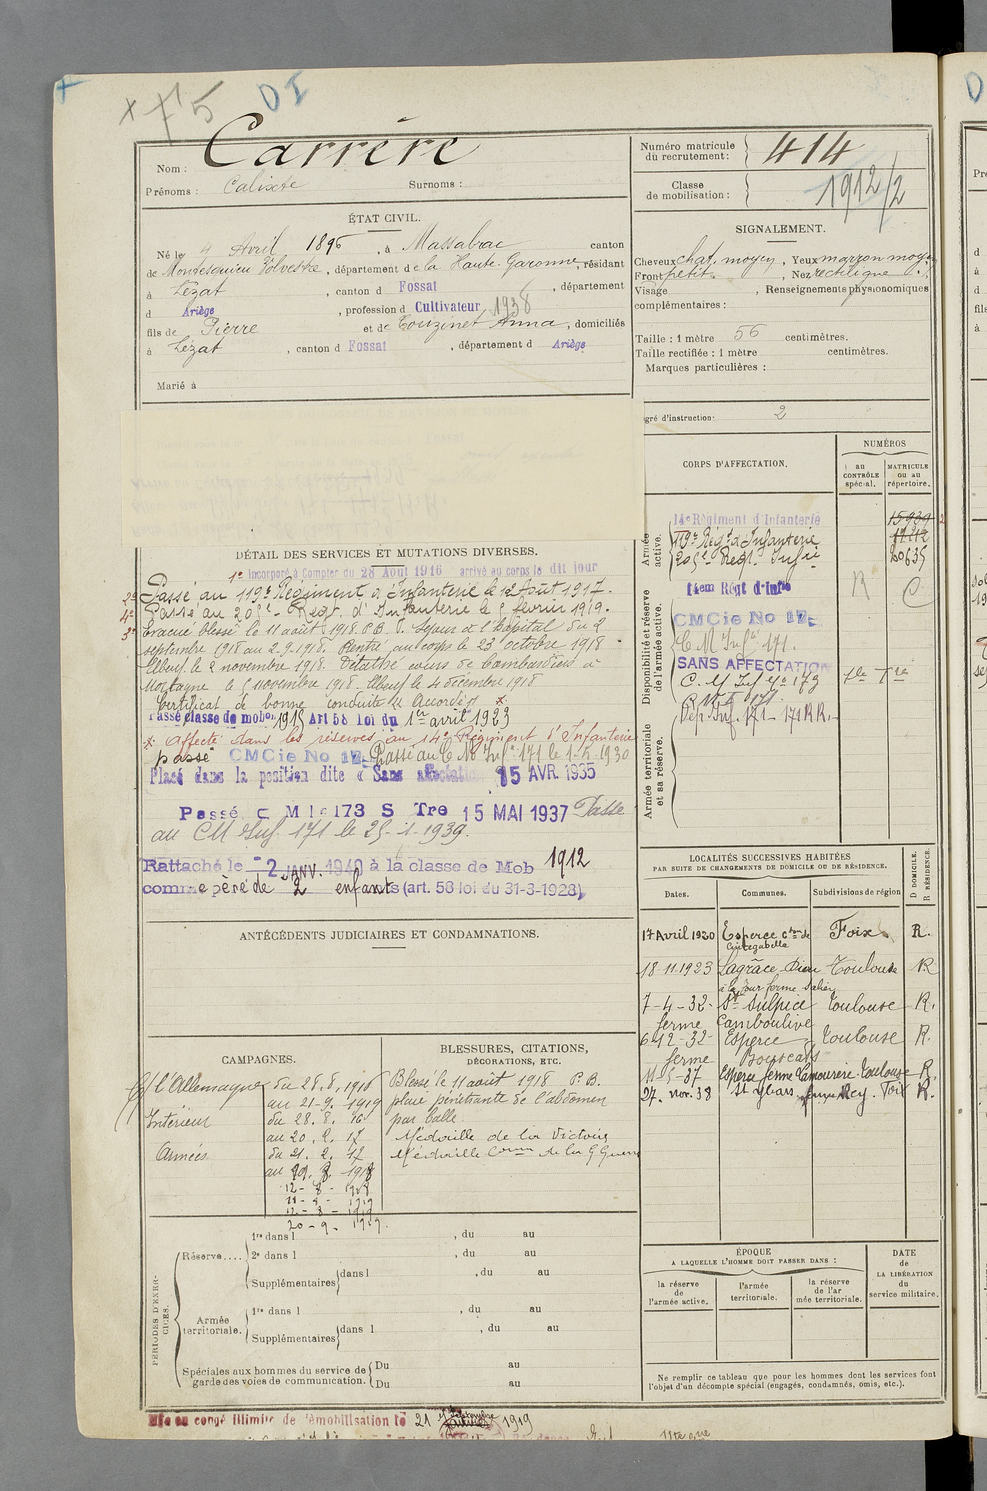 + x 5 DI
Nom : Carrère
Prénoms : Calixte Surnoms :
Numéro matricule du recrutement : 414
Classe de mobilisation : 1912/2
ÉTAT CIVIL.
Né le 4 Avril 1896, à Massabrac canton
de Montesquieu Volvestre, département de la Haute-Garonne, résidant
à Lézat, canton d Fossat, département
d Ariège, profession d Cultivateur 1938
fils de Pierre et de Touzinet Anna, domiciliés
à Lézat, canton d Fossat, département d Ariège
Marié à
SIGNALEMENT.
Cheveux chat. moyen, Yeux marron moyen
Front petit, Nez rectiligne
Visage, Renseignements physionomiques
complémentaires :
Taille : 1 mètre 56 centimètres.
Taille rectifiée : 1 mètre centimètres.
Marques particulières :
gré d'instruction: 2
CORPS D'AFFECTATION.
NUMÉROS
au CONTRÔLE spécial.
MATRICULE ou au répertoire.
Armée active.
14e Régiment d'Infanterie 15939
119e Régt d'Infanterie
205e Regt Infie 20635
Disponibilité et réserve de l'armée active.
14em Régt d'Infie R C
CMCie No 17
C M Infie 171.
SANS AFFECTATION
C. M Inf No 173
C M I 171
Dep Inf. 171 - 171 RR
Armée territoriale et sa réserve.
DÉTAIL DES SERVICES ET MUTATIONS DIVERSES.
1° Incorporé à Compter du 28 Août 1916 arrivé au corps le dit jour
2° Passé au 119e Régiment d'Infanterie le 12 Août 1917.
4° Passé au 205e Regt. d'Infanterie le 5 février 1919.
3° Evacué blessé le 11 août 1918. P.B. Séjour et l'hôpital du 2
septembre 1918 au 2.9.1918. Rentré au corps le 23 octobre 1918
le 2 novembre 1918. Détaché cours de
Mortagne le 5 novembre 1918. le 4 décembre 1918
Certificat de bonne conduite "Accordé" x
Passé classe de mobon 1915 Art 58 loi du 1er avril 1923
x Affecté dans les réserves au 14e Régiment d'Infanterie
passé CMCie No 17 Passé au C M Infie 171 le 1-5-1930
Placé dans la position dite « Sans affectation 15 AVR. 1935
Passé C M I e 173 S Tre 15 MAI 1937 Passé
au CM Inf. 171 le 25-1-1939.
Rattaché le 2 JANV. 1940 à la classe de Mob 1912
comme père de 2 enfants (art. 58 loi du 31-3-1928)
ANTÉCÉDENTS JUDICIAIRES ET CONDAMNATIONS.
LOCALITÉS SUCCESSIVES HABITÉES
PAR SUITE DE CHANGEMENTS DE DOMICILE OU DE RÉSIDENCE.
Dates. Communes. Subdivisions de région D DOMICILE. R RÉSIDENCE.
17 Avril 1920 Esperce Cton de Cintegabelle Foix R.
18-11-1923 Lagrâce-Dieu Toulouse R
7-4-32 St Sulpice Toulouse R.
ferme Camboulive
6-12-32 Esperce Toulouse R.
ferme
11-5-37 Esperce ferme Lamourère Toulouse R.
27. Nov. 38 St Ybars, Foix R.
CAMPAGNES.
c/ l'Allemagne du 28.8.1916
au 21-9-1919
Intérieur du 28.8.16
au 20.2.17
Armées du 21.2.17
au 1918
12-8-1918
11-8-1919
12-8-1919
20-9-1919.
BLESSURES, CITATIONS,
DÉCORATIONS, ETC.
Blessé le 11 août 1918 P.B.
plaie pénétrante de l'abdomen
par balle
Médaille de la Victoire
Médaille Comm de la G Guerre
PÉRIODES D'EXERCICES.
Réserve.... 1re dans l , du au
2e dans l , du au
Supplémentaires dans l , du au
Armée territoriale. 1re dans l , du au
Supplémentaires dans l , du au
Spéciales aux hommes du service de garde des voies de communication. Du au
Du au
ÉPOQUE
A LAQUELLE L'HOMME DOIT PASSER DANS :
la réserve de l'armée active.
l'armée territoriale.
la réserve de l'armée territoriale.
DATE de LA LIBÉRATION du service militaire.
Ne remplir ce tableau que pour les hommes dont les services font
l'objet d'un décompte spécial (engagés, condamnés, omis, etc.).
Mis en congé illimité de démobilisation le 21 septembre 1919